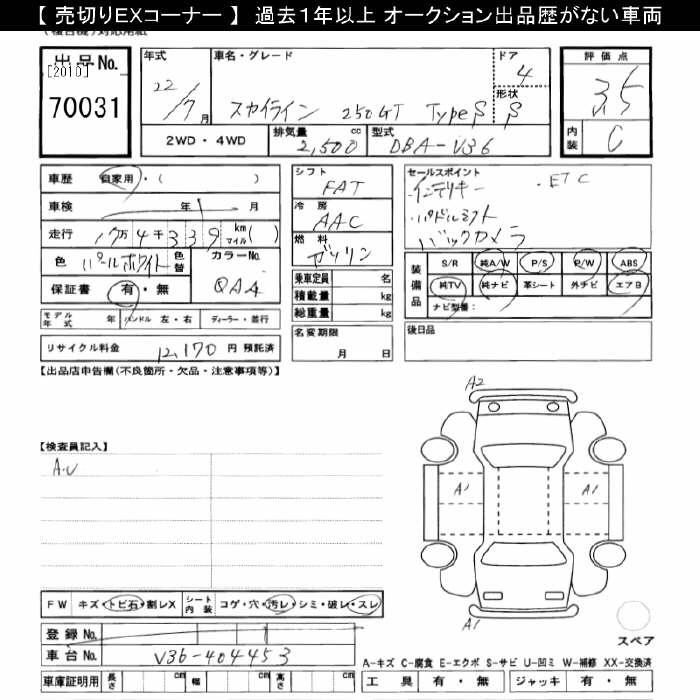 【 売切りEXコーナー 】 過去１年以上 オークション出品歴がない車両
出品No. [2010] 70031
年式 22/7月 車名・グレード スカイライン 250GT TypeS ドア 4 形状 S 評価点 3.5
2WD・4WD 排気量 2,500 cc 型式 DBA-V36 内装 C
車歴 自家用・( )
車検 年 月
走行 17万4千339 km マイル( )
色 パールホワイト 色替 カラーNo. QAA
保証書 有・無
シフト FAT
冷房 AAC
燃料 ガソリン
乗車定員 名
積載量 kg
総重量 kg
セールスポイント
・インテリキー ・ETC
・パドルシフト
・バックカメラ
装備品 S/R 純A/W P/S P/W ABS
純TV 純ナビ 革シート 外ナビ エアB
ナビ型番：
モデル年式 年 ハンドル 左・右 ディーラー・並行
名変期限 月 日
後日品
リサイクル料金 12,170 円 預託済
【出品店申告欄(不良箇所・欠品・注意事項等)】
【検査員記入】
A・U
A2
A1 A1
A1
FW キズ・トビ石・割レX シート内装 コゲ・穴・汚レ・シミ・破レ・スレ
登録No.
車台No. V36-404453
スペア
A-キズ C-腐食 E-エクボ S-サビ U-凹ミ W-補修 XX-交換済
車庫証明用 長さ cm 幅 cm 高さ cm 工具 有・無 ジャッキ 有・無